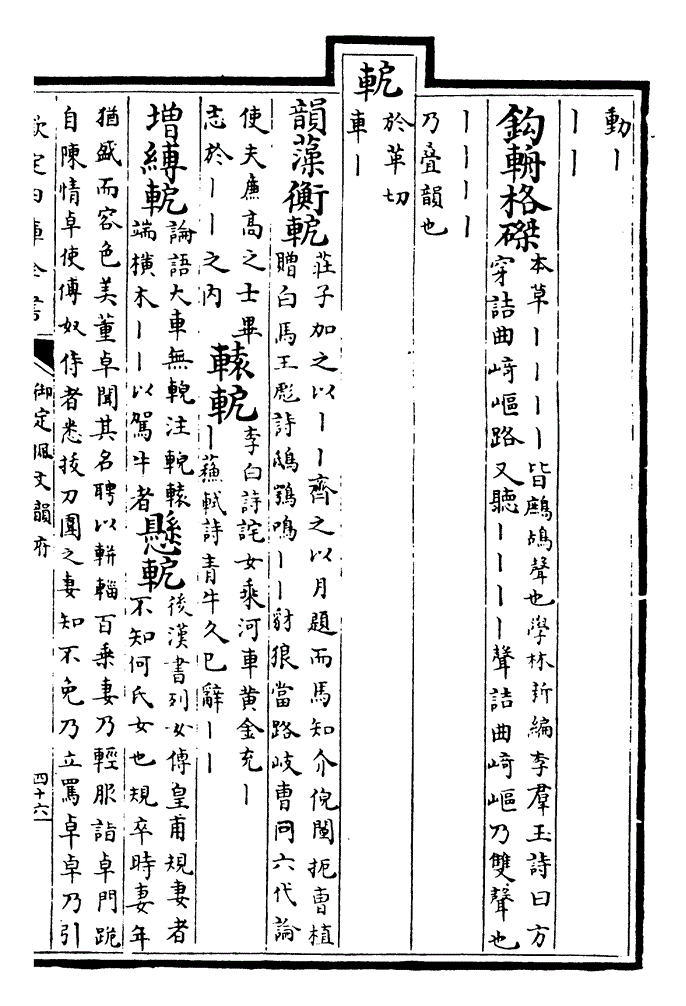 動丨
丨丨
鈎輈格磔
本草丨丨丨丨皆鷓鴣聲也學林新編李羣玉詩曰方
穿詰曲崎嶇路又聽丨丨丨丨聲詰曲崎嶇乃雙聲也
丨丨丨丨
乃疊韻也
軶
於革切
車丨
韻藻衡軶
莊子加之以丨丨齊之以月題而馬知介倪闉扼曹植
贈白馬王彪詩鴟鴞鳴丨丨豺狼當路岐曹冏六代論
使夫廉高之士畢
志於丨丨之内
轅軶
李白詩詫女乘河車黄金充丨
丨蘇軾詩青牛久已辭丨丨
増縛軶
論語大車無輗注輗轅
端橫木丨丨以駕牛者
懸軶
後漢書列女傳皇甫規妻者
不知何氏女也規卒時妻年
猶盛而容色美董卓聞其名聘以軿輜百乘妻乃輕服詣卓門跪
自陳情卓使傅奴侍者悉拔刀圍之妻知不免乃立罵卓卓乃引
欽定四庫全書
御定佩文韻府
四十六